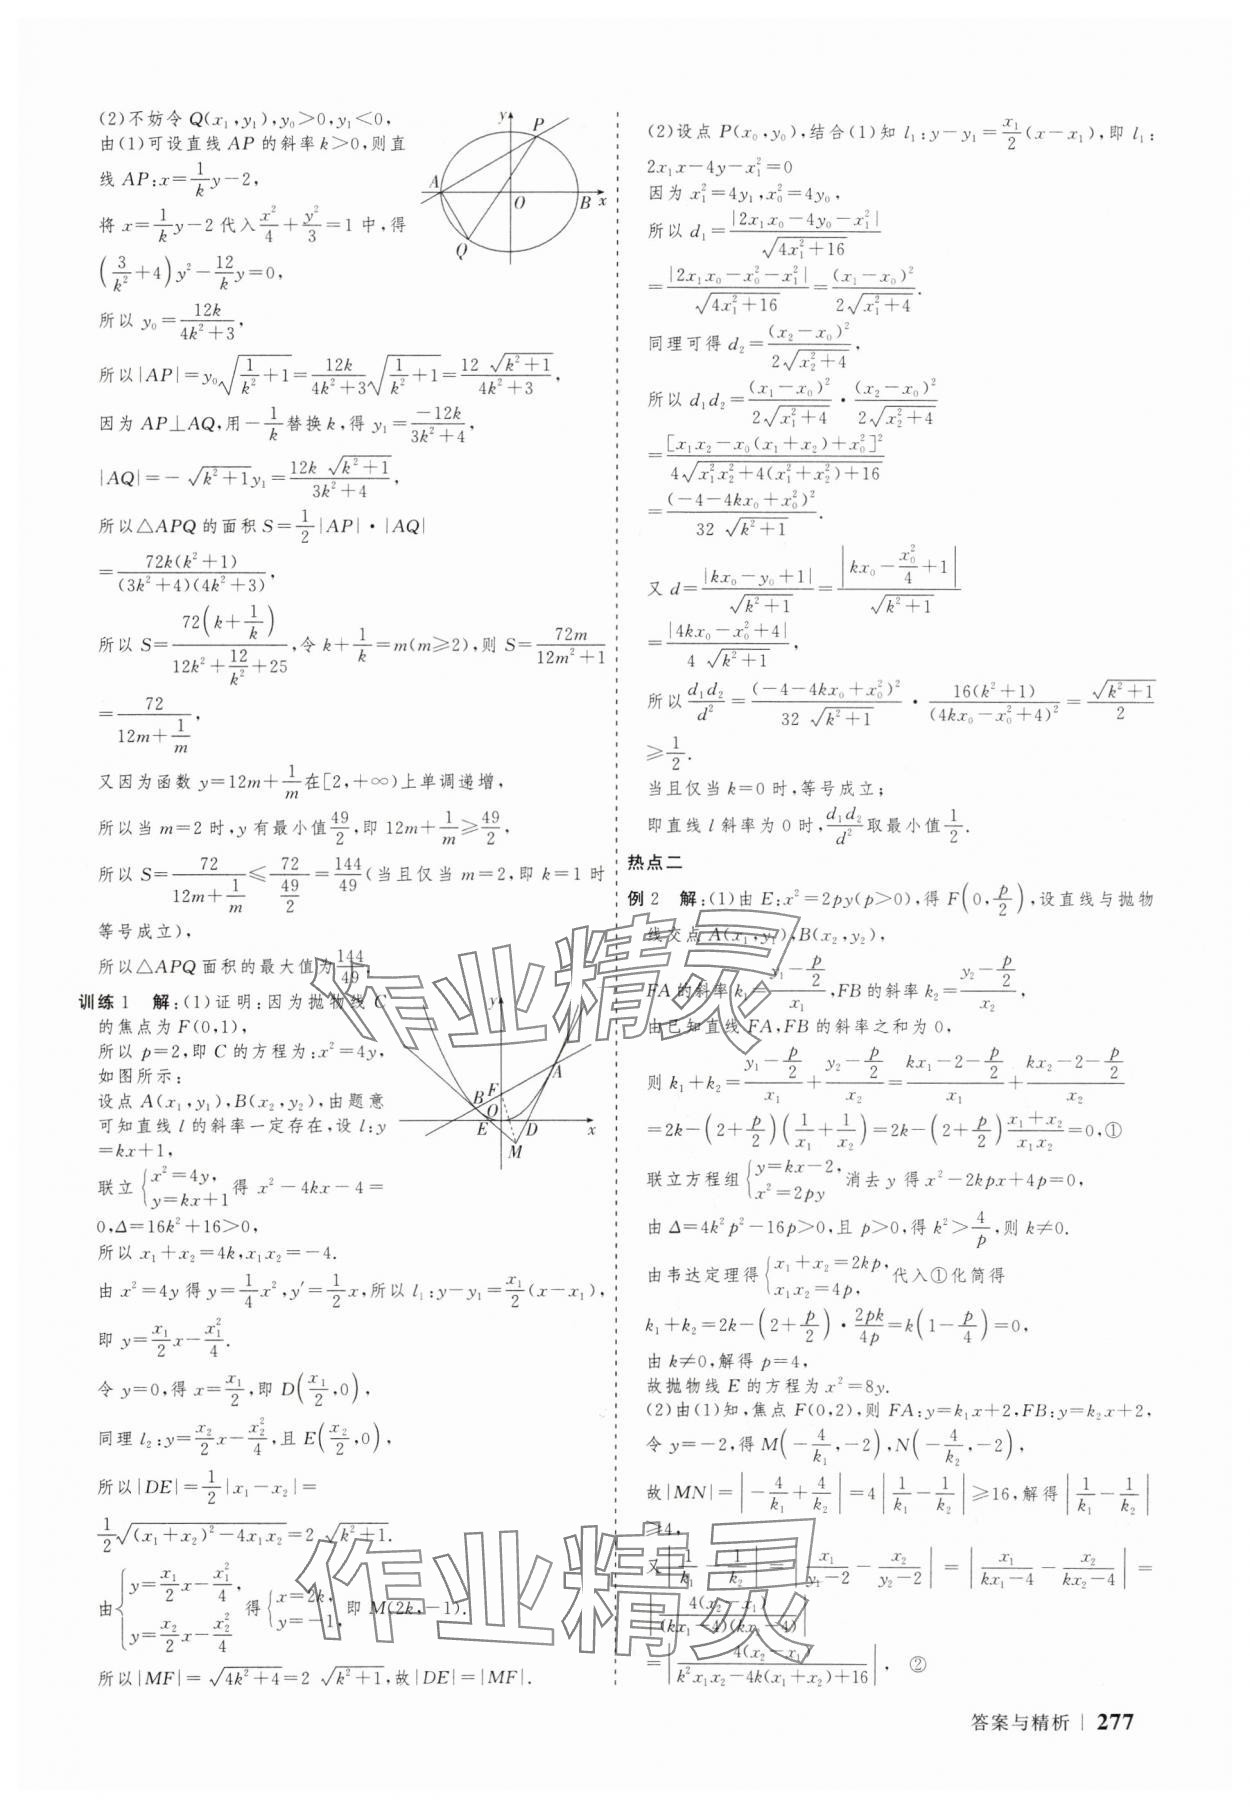 (2)不妨令 Q(x₁,y₁),y₀>0,y₁<0,
由(1)可设直线 AP 的斜率 k>0,则直
线 AP:x=\frac{1}{k}y-2,
将 x=\frac{1}{k}y-2 代入\frac{x²}{4}+\frac{y²}{3}=1 中,得
(\frac{3}{k²}+4)y²-\frac{12}{k}y=0,
所以 y₀=\frac{12k}{4k²+3},
所以|AP|=y₀\sqrt{\frac{1}{k²}+1}=\frac{12k}{4k²+3}\sqrt{\frac{1}{k²}+1}=\frac{12\sqrt{k²+1}}{4k²+3},
因为 AP⊥AQ,用-\frac{1}{k}替换 k,得 y₁=\frac{-12k}{3k²+4},
|AQ|=-\sqrt{k²+1}y₁=\frac{12k\sqrt{k²+1}}{3k²+4},
所以△APQ 的面积 S=\frac{1}{2}|AP|·|AQ|
=\frac{72k(k²+1)}{(3k²+4)(4k²+3)},
所以 S=\frac{72(k+\frac{1}{k})}{12k²+\frac{12}{k²}+25},令 k+\frac{1}{k}=m(m≥2),则 S=\frac{72m}{12m²+1}
=\frac{72}{12m+\frac{1}{m}},
又因为函数 y=12m+\frac{1}{m}在[2,+∞)上单调递增,
所以当 m=2 时,y 有最小值\frac{49}{2},即 12m+\frac{1}{m}≥\frac{49}{2},
所以 S=\frac{72}{12m+\frac{1}{m}}≤\frac{72}{\frac{49}{2}}=\frac{144}{49}(当且仅当 m=2,即 k=1 时
等号成立),
所以△APQ 面积的最大值为\frac{144}{49}.
训练 1 解:(1)证明:因为抛物线 C
的焦点为 F(0,1),
所以 p=2,即 C 的方程为:x²=4y,
如图所示:
设点 A(x₁,y₁),B(x₂,y₂),由题意
可知直线 l 的斜率一定存在,设 l:y
=kx+1,
联立{x²=4y, y=kx+1 得 x²-4kx-4=
0,Δ=16k²+16>0,
所以 x₁+x₂=4k,x₁x₂=-4.
由 x²=4y 得 y=\frac{1}{4}x²,y′=\frac{1}{2}x,所以 l₁:y-y₁=\frac{x₁}{2}(x-x₁),
即 y=\frac{x₁}{2}x-\frac{x₁²}{4}.
令 y=0,得 x=\frac{x₁}{2},即 D(\frac{x₁}{2},0),
同理 l₂:y=\frac{x₂}{2}x-\frac{x₂²}{4},且 E(\frac{x₂}{2},0),
所以|DE|=\frac{1}{2}|x₁-x₂|=
\frac{1}{2}\sqrt{(x₁+x₂)²-4x₁x₂}=2\sqrt{k²+1}.
由{y=\frac{x₁}{2}x-\frac{x₁²}{4} y=\frac{x₂}{2}x-\frac{x₂²}{4} 得{x=2k, y=-1, 即 M(2k,-1).
所以|MF|=\sqrt{4k²+4}=2\sqrt{k²+1},故|DE|=|MF|.
y
P
A
O
B x
Q
y
A
B
F
O
E
D
x
M
(2)设点 P(x₀,y₀),结合(1)知 l₁:y-y₁=\frac{x₁}{2}(x-x₁),即 l₁:
2x₁x-4y-x₁²=0
因为 x₁²=4y₁,x₀²=4y₀,
所以 d₁=\frac{|2x₁x₀-4y₀-x₁²|}{\sqrt{4x₁²+16}}
=\frac{|2x₁x₀-x₀²-x₁²|}{\sqrt{4x₁²+16}}=\frac{(x₁-x₀)²}{2\sqrt{x₁²+4}}.
同理可得 d₂=\frac{(x₂-x₀)²}{2\sqrt{x₂²+4}},
所以 d₁d₂=\frac{(x₁-x₀)²}{2\sqrt{x₁²+4}}·\frac{(x₂-x₀)²}{2\sqrt{x₂²+4}}
=\frac{[x₁x₂-x₀(x₁+x₂)+x₀²]²}{4\sqrt{x₁²x₂²+4(x₁²+x₂²)+16}}
=\frac{(-4-4kx₀+x₀²)²}{32\sqrt{k²+1}}.
又 d=\frac{|kx₀-y₀+1|}{\sqrt{k²+1}}=\frac{|kx₀-\frac{x₀²}{4}+1|}{\sqrt{k²+1}}
=\frac{|4kx₀-x₀²+4|}{4\sqrt{k²+1}},
所以\frac{d₁d₂}{d²}=\frac{(-4-4kx₀+x₀²)²}{32\sqrt{k²+1}}·\frac{16(k²+1)}{(4kx₀-x₀²+4)²}=\frac{\sqrt{k²+1}}{2}
≥\frac{1}{2}.
当且仅当 k=0 时,等号成立;
即直线 l 斜率为 0 时,\frac{d₁d₂}{d²}取最小值\frac{1}{2}.
热点二
例 2 解:(1)由 E:x²=2py(p>0),得 F(0,\frac{p}{2}),设直线与抛物
线交点 A(x₁,y₁),B(x₂,y₂),
FA 的斜率 k₁=\frac{y₁-\frac{p}{2}}{x₁},FB 的斜率 k₂=\frac{y₂-\frac{p}{2}}{x₂},
由已知直线 FA,FB 的斜率之和为 0,
则 k₁+k₂=\frac{y₁-\frac{p}{2}}{x₁}+\frac{y₂-\frac{p}{2}}{x₂}=\frac{kx₁-2-\frac{p}{2}}{x₁}+\frac{kx₂-2-\frac{p}{2}}{x₂}
=2k-(2+\frac{p}{2})(\frac{1}{x₁}+\frac{1}{x₂})=2k-(2+\frac{p}{2})\frac{x₁+x₂}{x₁x₂}=0,①
联立方程组{y=kx-2, x²=2py 消去 y 得 x²-2kpx+4p=0,
由 Δ=4k²p²-16p>0,且 p>0,得 k²>\frac{4}{p},则 k≠0.
由韦达定理得{x₁+x₂=2kp, x₁x₂=4p, 代入①化简得
k₁+k₂=2k-(2+\frac{p}{2})·\frac{2pk}{4p}=k(1-\frac{p}{4})=0,
由 k≠0,解得 p=4,
故抛物线 E 的方程为 x²=8y.
(2)由(1)知,焦点 F(0,2),则 FA:y=k₁x+2,FB:y=k₂x+2,
令 y=-2,得 M(-\frac{4}{k₁},-2),N(-\frac{4}{k₂},-2),
故|MN|=|-\frac{4}{k₁}+\frac{4}{k₂}|=4|\frac{1}{k₁}-\frac{1}{k₂}|≥16,解得|\frac{1}{k₁}-\frac{1}{k₂}|
≥4,
又|\frac{1}{k₁}-\frac{1}{k₂}|=|\frac{x₁}{y₁-2}-\frac{x₂}{y₂-2}|=|\frac{x₁}{kx₁-4}-\frac{x₂}{kx₂-4}|=
|\frac{4(x₂-x₁)}{(kx₁-4)(kx₂-4)}|
=|\frac{4(x₂-x₁)}{k²x₁x₂-4k(x₁+x₂)+16}|, ②
作业精灵
作业精灵
答案与精析 | 277